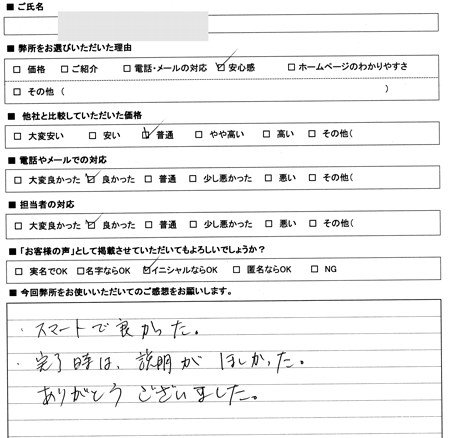 ■ ご氏名
■ 弊所をお選びいただいた理由
□ 価格 □ ご紹介 □ 電話・メールの対応 ☑ 安心感 □ ホームページのわかりやすさ
□ その他 ( )
■ 他社と比較していただいた価格
□ 大変安い □ 安い ☑ 普通 □ やや高い □ 高い □ その他(
■ 電話やメールでの対応
□ 大変良かった ☑ 良かった □ 普通 □ 少し悪かった □ 悪い □ その他(
■ 担当者の対応
□ 大変良かった ☑ 良かった □ 普通 □ 少し悪かった □ 悪い □ その他(
■ 「お客様の声」として掲載させていただいてもよろしいでしょうか？
□ 実名でOK □ 名字ならOK ☑ イニシャルならOK □ 匿名ならOK □ NG
■ 今回弊所をお使いいただいてのご感想をお願いします。
・スマートで良かった。
・完了時は、説明がほしかった。
ありがとうございました。